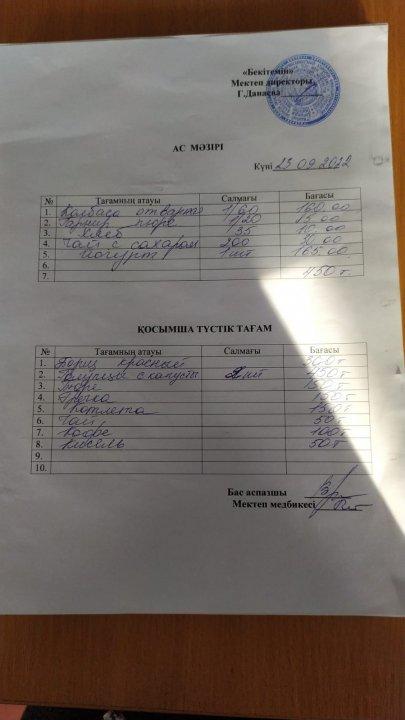 «Бекітемін»
Мектеп директоры
Г.Данаева
АС МӘЗІРІ
Күні 23 09.2022
№ Тағамның атауы Салмағы Бағасы
1. Колбаса отварная 1/60 160.00
2. Гарнир пюре 1/120
3. Хлеб 1/35 10.00
4. Чай с сахаром 200
5. Йогурт 1 шт 165.00
6.
7. 450 т.
ҚОСЫМША ТҮСТІК ТАҒАМ
№ Тағамның атауы Салмағы Бағасы
1. Борщ красный
2. с капусты шт
3. Пюре
4. Гречка
5. Котлета 150 т
6. Чай 50 т
7. Кофе 100 т
8. Кисель 50 т
9.
10.
Бас аспазшы
Мектеп медбикесі